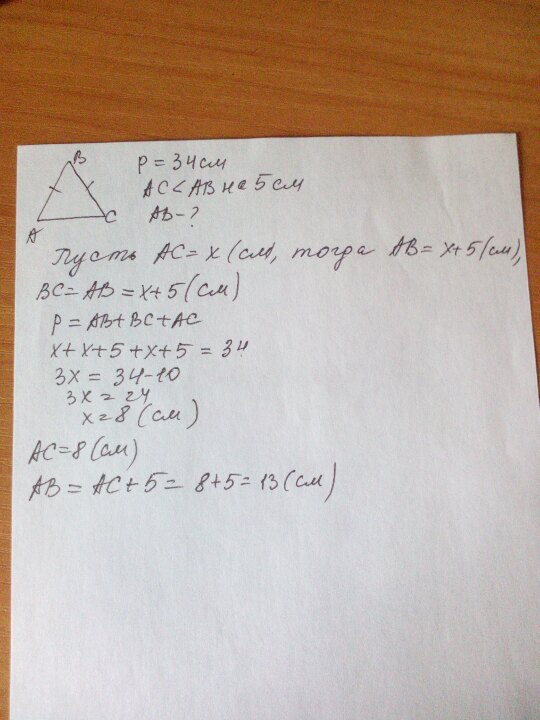 B
A
C
P = 34см
AC < AB на 5 см
AB - ?
Пусть AC = x (см), тогда AB = x+5 (см),
BC = AB = x+5 (см)
P = AB + BC + AC
x + x + 5 + x + 5 = 34
3x = 34 - 10
3x = 24
x = 8 (см)
AC = 8 (см)
AB = AC + 5 = 8 + 5 = 13 (см)